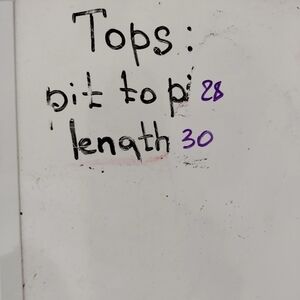 Tops:
pit to pi 28
length 30